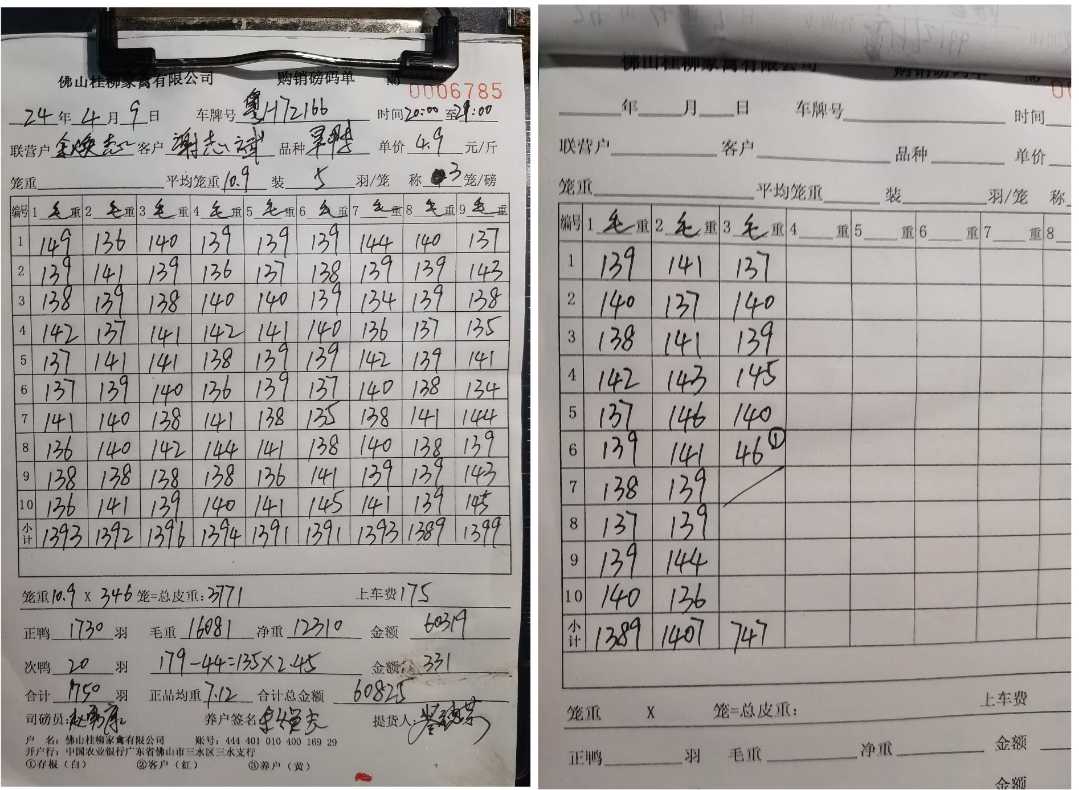 佛山桂柳家禽有限公司 购销磅码单 № 0006785
24年4月9日 车牌号 粤H72166 时间20:00至21:00
联营户 客户 谢志斌 品种 单价 4.9 元/斤
笼重 平均笼重10.9 装 5 羽/笼 称 3笼/磅
编号 1毛重 2毛重 3毛重 4毛重 5毛重 6毛重 7毛重 8毛重 9毛重
1 149 136 140 139 139 139 144 140 137
2 139 141 139 136 137 138 139 139 143
3 138 139 138 140 140 139 134 139 138
4 142 137 141 142 141 140 136 137 135
5 137 141 141 138 139 139 142 139 141
6 137 139 140 136 139 137 140 138 134
7 141 140 138 141 138 135 138 141 144
8 136 140 142 144 141 138 140 138 139
9 138 138 138 138 136 141 139 139 143
10 136 141 139 140 141 145 141 139 145
小计 1393 1392 1396 1394 1391 1391 1393 1389 1399
笼重10.9 X 346 笼=总皮重:3771 上车费175
正鸭 1730 羽 毛重 16081 净重 12310 金额 60319
次鸭 20 羽 179-44=135×2.45 金额: 331
合计 1750 羽 正品均重7.12 合计总金额 60825
司磅员: 养户签名 提货人:
户 名: 佛山桂柳家禽有限公司 账号: 444 401 010 400 169 29
开户行: 中国农业银行广东省佛山市三水区三水支行
①存根(白) ②客户(红) ③养户(黄)
佛山桂柳家禽有限公司 购销磅码单 № 00
年 月 日 车牌号 时间
联营户 客户 品种 单价
笼重 平均笼重 装 羽/笼 称
编号 1毛重 2毛重 3毛重 4 重 5 重 6 重 7 重 8
1 139 141 137
2 140 137 140
3 138 141 139
4 142 143 145
5 137 146 140
6 139 141 46①
7 138 139
8 137 139
9 139 144
10 140 136
小计 1389 1407 747
笼重 X 笼=总皮重: 上车费
正鸭 羽 毛重 净重 金额
金额